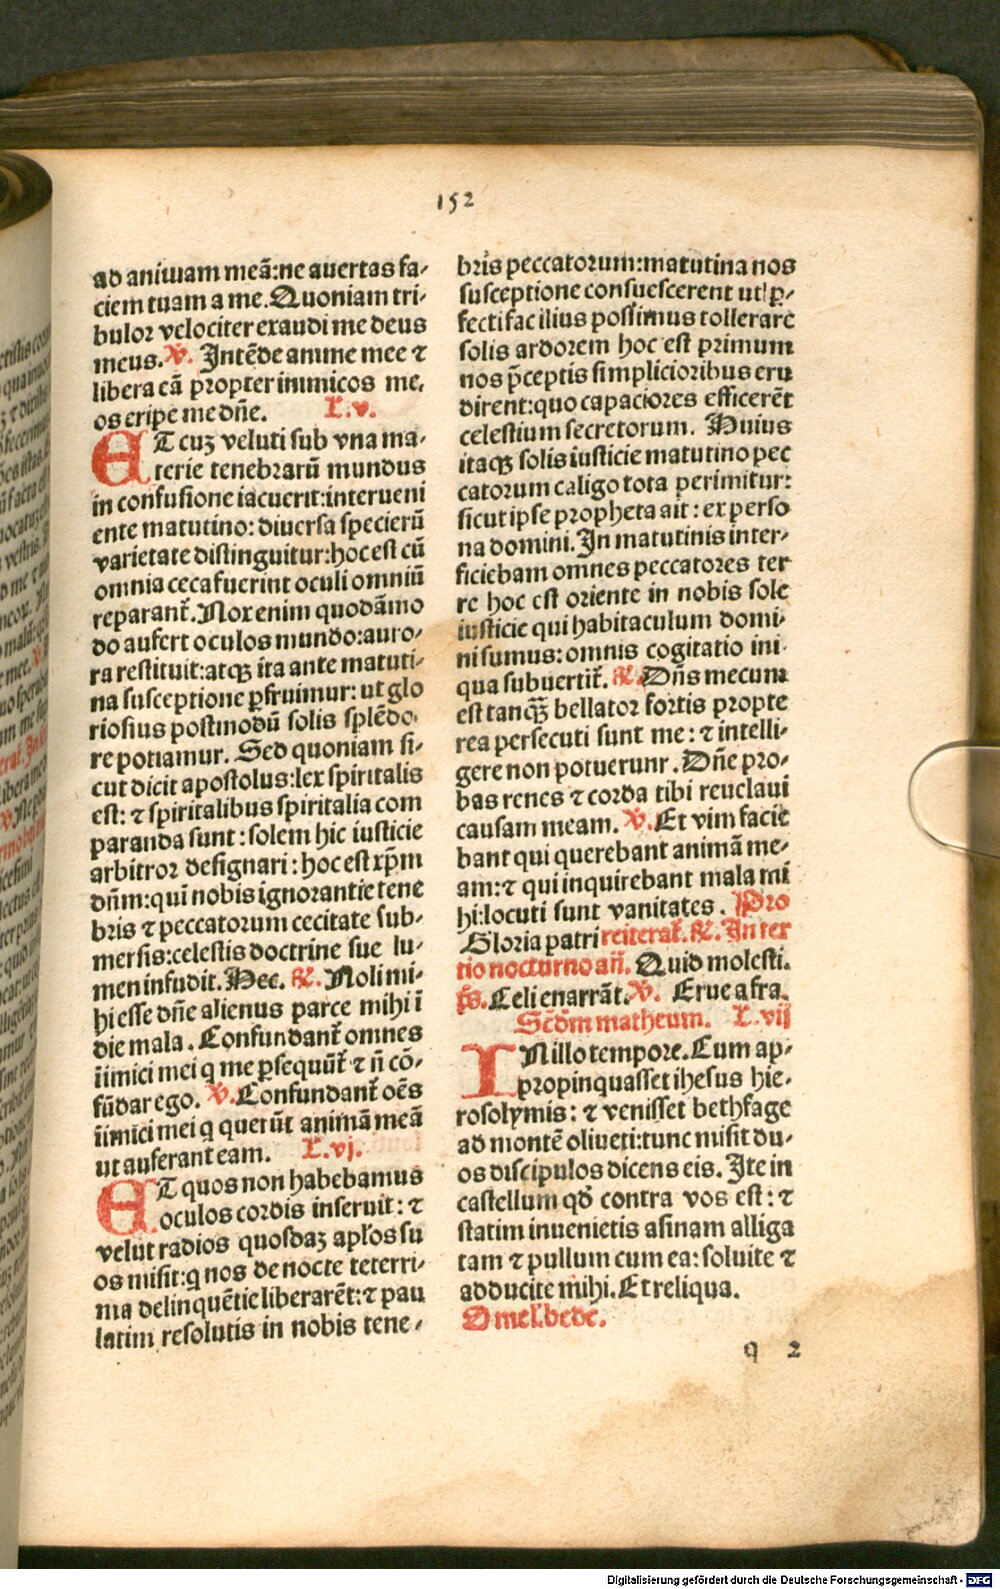 152
ad animam meā:ne auertas fa-
ciem tuam a me. Quoniam tri-
bulor velociter exaudi me deus
meus. V. Intēde anime mee ⁊
libera eā propter inimicos me-
os eripe me dn̄e. L.v.
ET cuꝫ veluti sub vna ma-
terie tenebrarū mundus
in confusione iacuerit:interueni
ente matutino: diuersa specierū
varietate distinguitur:hoc est cū
omnia ceca fuerint oculi omniū
reparant᷑. Nox enim quodāmo
do aufert oculos mundo:auro-
ra restituit:atqꝫ ita ante matuti-
na susceptione ꝑfruimur: ut glo
riosius postmodū solis splēdo-
re potiamur. Sed quoniam si-
cut dicit apostolus:lex spiritalis
est: ⁊ spiritalibus spiritalia com
paranda sunt: solem hic iusticie
arbitror designari: hoc est xp̄m
dn̄m:qui nobis ignorantie tene
bris ⁊ peccatorum cecitate sub-
mersis:celestis doctrine sue lu-
men infudit. Hec. R. Noli mi-
hi esse dn̄e alienus parce mihi ī
die mala. Confundant᷑ omnes
īimici mei q me ꝑsequūt᷑ ⁊ n̄ cō-
fūdar ego. V. Confundant᷑ oēs
īimici mei q querūt animā meā
ut auferant eam. L.vj.
ET quos non habebamus
oculos cordis inseruit: ⁊
velut radios quosdaꝫ apl̓os su
os misit:q nos de nocte teterri-
ma delinquētie liberarēt:⁊ pau
latim resolutis in nobis tene-
bris peccatorum:matutina nos
susceptione consuescerent ut ꝑ-
fecti facilius possimus tollerare
solis ardorem hoc est primum
nos p̄ceptis simplicioribus eru
dirent:quo capaciores efficerēt
celestium secretorum. Huius
itaqꝫ solis iusticie matutino pec
catorum caligo tota perimitur:
sicut ipse propheta ait: ex perso
na domini. In matutinis inter-
ficiebam omnes peccatores ter
re hoc est oriente in nobis sole
iusticie qui habitaculum domi-
ni sumus: omnis cogitatio ini-
qua subuertit᷑. R. Dn̄s mecum
est tanqꝫ bellator fortis propte
rea persecuti sunt me: ⁊ intelli-
gere non potuerunt. Dn̄e pro-
bas renes ⁊ corda tibi reuelaui
causam meam. V. Et vim facie
bant qui querebant animā me-
am:⁊ qui inquirebant mala mi
hi:locuti sunt vanitates. Pro
Gloria patri reiterat᷑. R. In ter
tio nocturno an̄. Quid molesti.
ps. Celi enarrāt. V. Erue a fra.
Scd̄m matheum. L.vij
IN illo tempore. Cum ap-
propinquasset ihesus hie-
rosolymis: ⁊ venisset bethfage
ad montē oliueti:tunc misit du-
os discipulos dicens eis. Ite in
castellum qd̄ contra vos est: ⁊
statim inuenietis asinam alliga
tam ⁊ pullum cum ea: soluite ⁊
adducite mihi. Et reliqua.
Omel̓. bede.
q 2
Digitalisierung gefördert durch die Deutsche Forschungsgemeinschaft - DFG